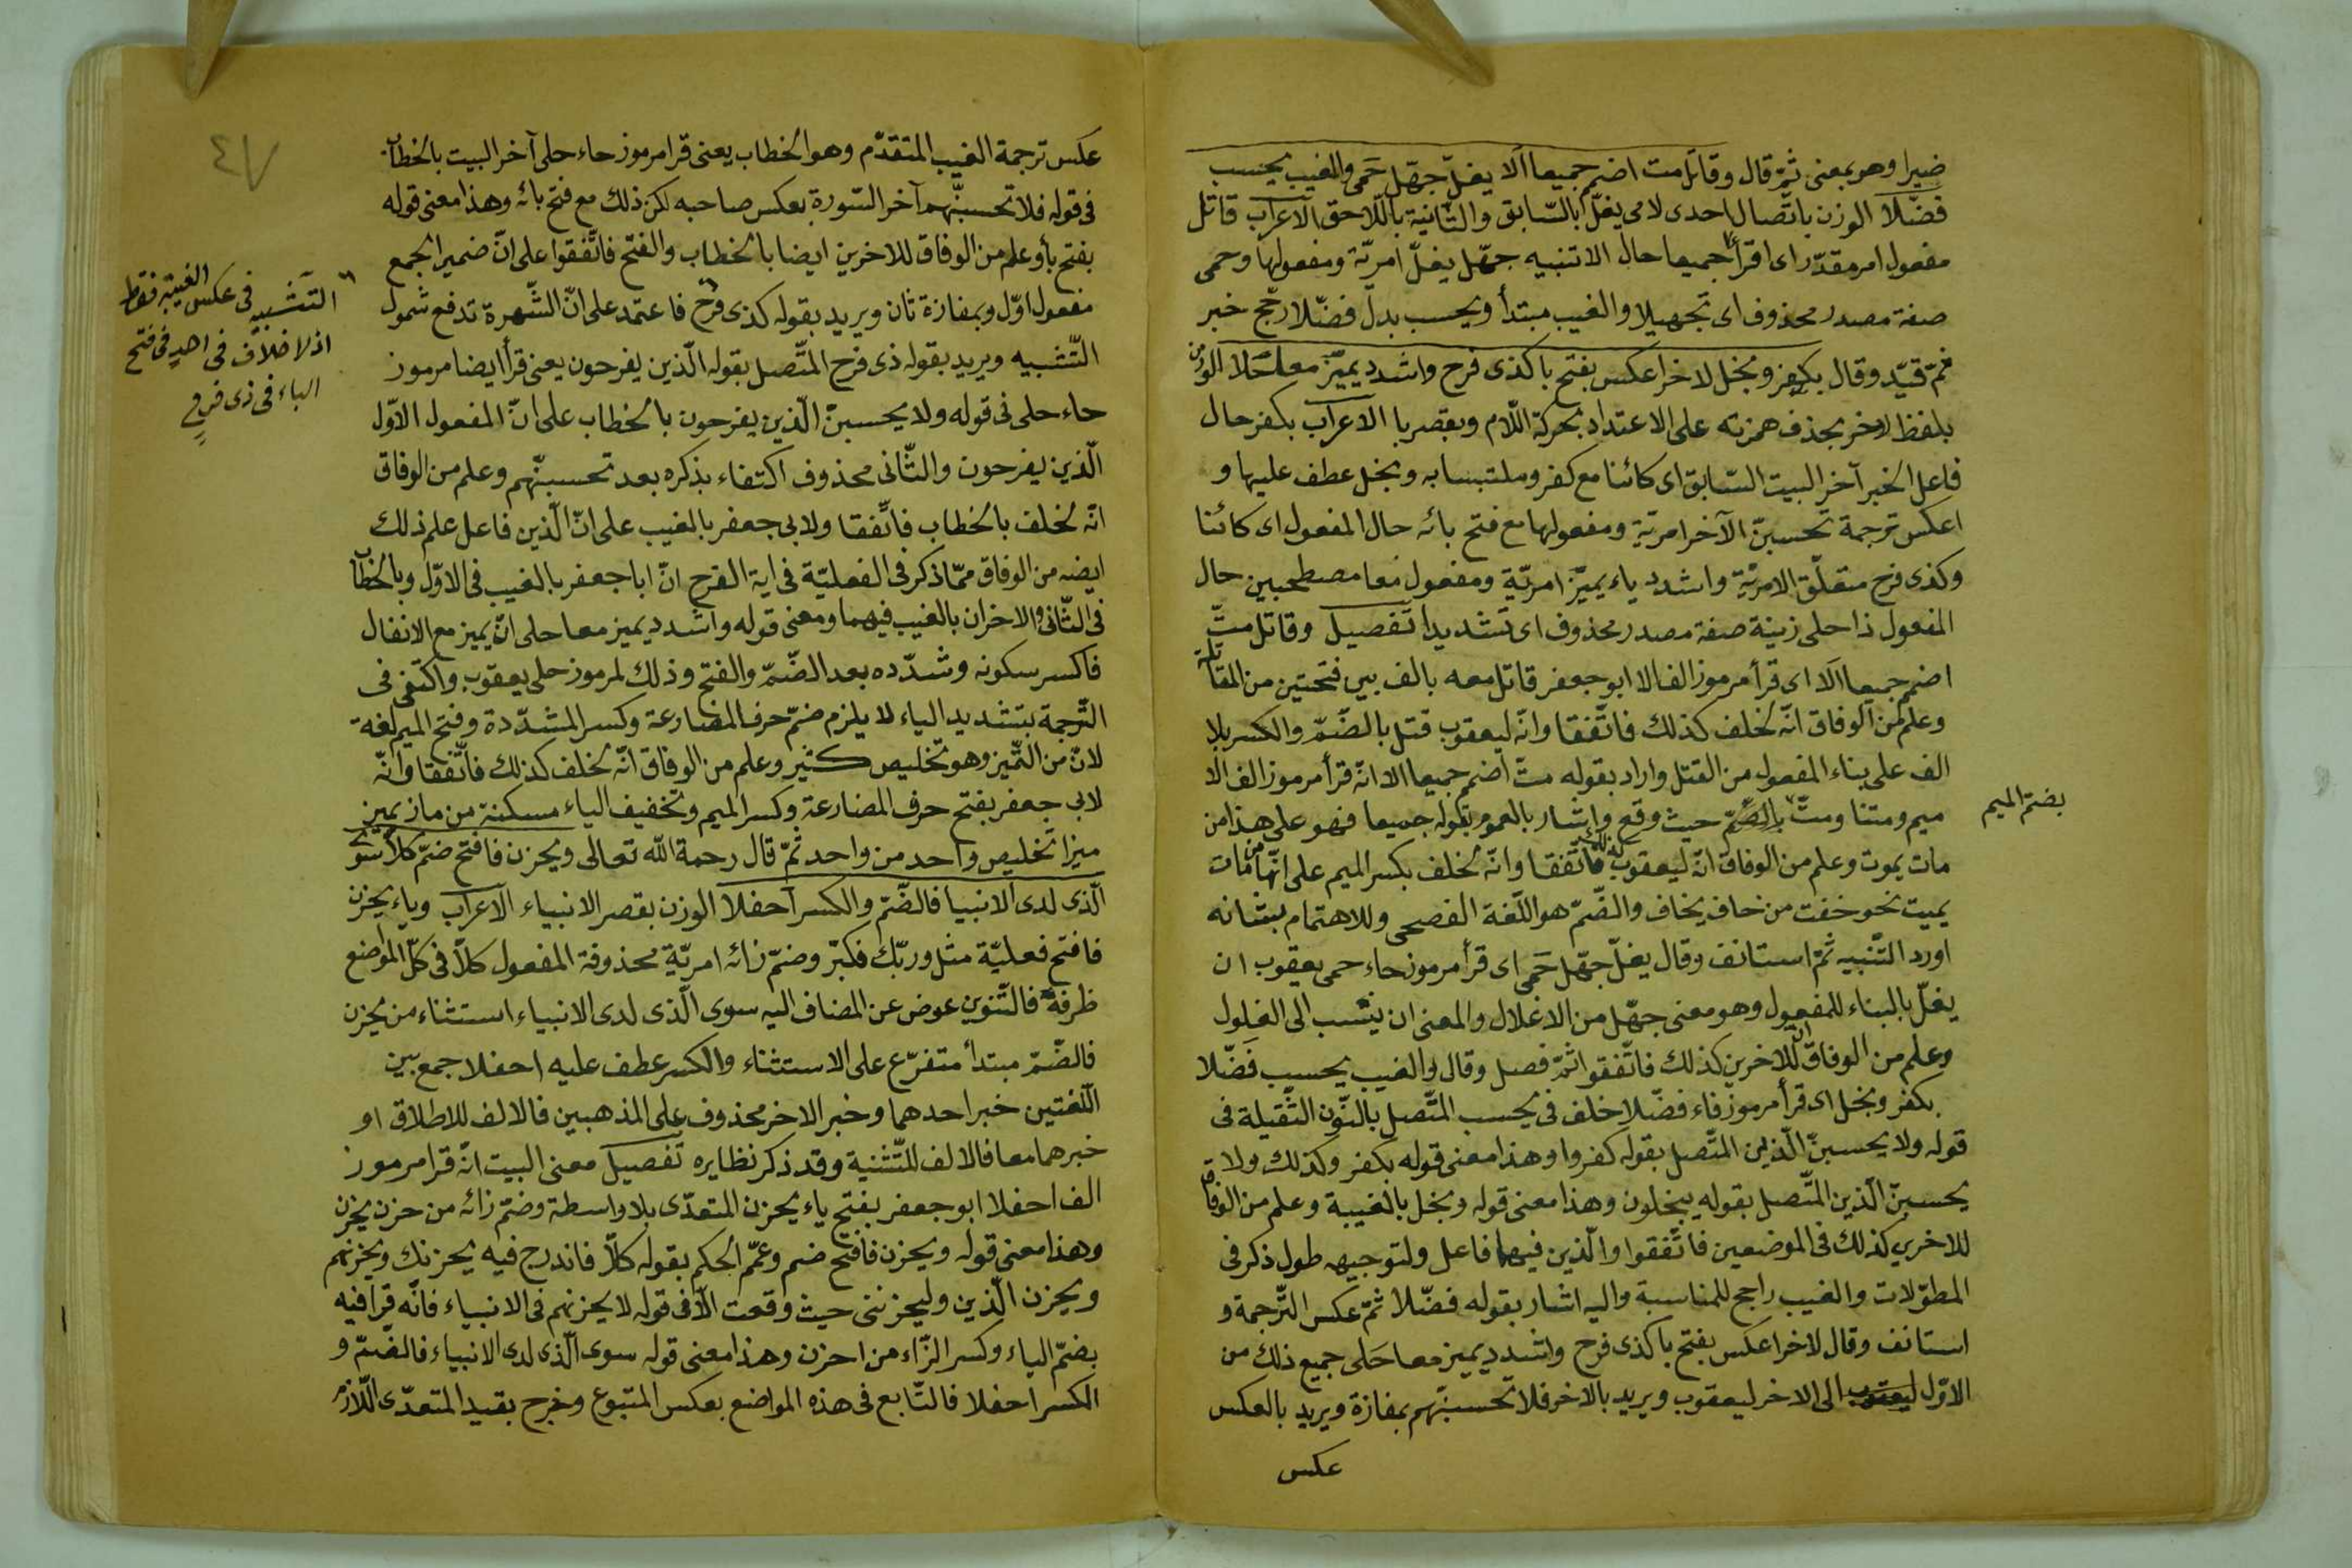 ضيرا وهو بمعنى ثمّ قال وقاتل مت اضمم جميعا ألا يغلّ جهّل حَمى والغيب يحسب
فضّلا الوزن باتّصال احدى لامى يغلّ بالسّابق والثّانية باللّاحق الاعراب قاتل
مفعول امر مقدّر اى اقرأ جميعا حال الا تنبيه جهّل يغلّ امريّة ومفعولها وحمى
صفة مصدر محذوف اى تجهيلا والغيب مبتدأ ويحسب بدل فضّلا رجّح خبر
ثمّ قيّد وقال بكفر وبخل لاخرا عكس بفتح با كذى فرح واشدد يميّز معا حَلا الوزن
بلفظ لاخر بحذف همزته على الاعتداد بحركة اللّام وبقصر با الاعراب بكفر حال
فاعل الخبر آخر البيت السّابق اى كائنا مع كفر وملتبسا به وبخل عطف عليها و
اعكس ترجمة تحسبنّ الآخر امريّة ومفعولها مع فتح بائه حال المفعول اى كائنا
وكذى فرح متعلّق الامريّة واشدد ياء يميّز امريّة ومفعول معا مصطحبين حال
المفعول ذا حلى زينة صفة مصدر محذوف اى تشديدا تفصيل وقاتل متّ
اضمم جميعا ألا اى قرأ مرموز الف الا ابو جعفر قاتل معه بالف بين فتحتين من المقاتلة
وعلم من الوفاق انّه لخلف كذلك فاتّفقا وانّه ليعقوب قتل بالضّمّ والكسر بلا
الف على بناء المفعول من القتل واراد بقوله متّ اضمم جميعا الا انّه قرأ مرموز الف الا
ميم ومتنا ومتّ بالضّمّ حيث وقع واشار بالعموم بقوله جميعا فهو على هذا من
مات يموت وعلم من الوفاق انّه ليعقوب كذلك فاتّفقا وانّه لخلف بكسر الميم على انّها من مات
يميت نحو خفت من خاف يخاف والضّمّ هو اللّغة الفصحى وللاهتمام بشانه
اورد التّنبيه ثمّ استانف وقال يغلّ جهّل حَمى اى قرأ مرموز حاء حمى يعقوب ان
يغلّ بالبناء للمفعول وهو معنى جهّل من الاغلال والمعنى ان ينسب الى الغلول
وعلم من الوفاق انّ للاخرين كذلك فاتّفقوا ثمّ فصل وقال والغيب يحسب فَضّلا
بكفر وبخل اى قرأ مرموز فاء فضّلا خلف فى يحسب المتّصل بالنّون الثّقيلة فى
قوله ولا يحسبنّ الّذين المتّصل بقوله كفروا وهذا معنى قوله بكفر وكذلك ولا
يحسبنّ الّذين المتّصل بقوله يبخلون وهذا معنى قوله وبخل بالغيبة وعلم من الوفاق
للاخرين كذلك فى الموضعين فاتّفقوا والّذين فيهما فاعل ولتوجيهه طول ذكر فى
المطوّلات والغيب راجح للمناسبة واليه اشار بقوله فضّلا ثمّ عكس التّرجمة و
استانف وقال لاخرا عكس بفتح با كذى فرح واشدد يميز معا حَلى جميع ذلك من
الاوّل الى الاخر ليعقوب ويريد بالاخر فلا تحسبنّهم بمفازة ويريد بالعكس
عكس
بضمّ الميم
عكس ترجمة الغيب المتقدّم وهو الخطاب يعنى قرا مرموز حاء حلى آخر البيت بالخطاب
فى قوله فلا تحسبنّهم آخر السّورة بعكس صاحبه لكن ذلك مع فتح بائه وهذا معنى قوله
بفتح بأ وعلم من الوفاق للاخرين ايضا بالخطاب والفتح فاتّفقوا على انّ ضمير الجمع
مفعول اوّل وبمفازة ثان ويريد بقوله كذى فرح فاعتمد على انّ الشّهرة تدفع شمول
التّشبيه ويريد بقوله ذى فرح المتّصل بقوله الّذين يفرحون يعنى قرأ ايضا مرموز
حاء حلى فى قوله ولا يحسبنّ الّذين يفرحون بالخطاب على انّ المفعول الاوّل
الّذين يفرحون والثّانى محذوف اكتفاء بذكره بعد تحسبنّهم وعلم من الوفاق
انّه لخلف بالخطاب فاتّفقا ولابى جعفر بالغيب على انّ الّذين فاعل علم ذلك
ايضه من الوفاق ممّا ذكر فى الفعليّة فى اية الفرح انّ ابا جعفر بالغيب فى الاوّل وبالخطاب
فى الثّانى والاخران بالغيب فيهما ومعنى قوله واشدد يميز معا حلى انّ يميز مع الانفال
فاكسر سكونه وشدّده بعد الضّمّ والفتح وذلك لمرموز حلى يعقوب واكتفى فى
التّرجمة بتشديد الياء لا يلزم ضمّ حرف المضارعة وكسر المشدّدة وفتح الميم لغة
لانّ من التّميز وهو تخليص كثير وعلم من الوفاق انّه لخلف كذلك فاتّفقا وانّه
لابى جعفر بفتح حرف المضارعة وكسر الميم وتخفيف الياء مسكنة من ماز يميز
ميزا تخليص واحد من واحد ثمّ قال رحمة الله تعالى ويحزن فافتح ضمّ كلّا سوى
الّذى لدى الانبيا فالضّمّ والكسر احفلا الوزن بقصر الانبياء الاعراب وياء يحزن
فافتح فعليّة مثل وربّك فكبّر وضمّ زائه امريّة محذوفة المفعول كلّا فى كلّ المواضع
ظرفه فالتّنوين عوض عن المضاف اليه سوى الّذى لدى الانبياء استثناء من يحزن
فالضّمّ مبتدأ متفرّع على الاستثناء والكسر عطف عليه احفلا جمع بين
اللّغتين خبر احدهما وخبر الاخر محذوف على المذهبين فالالف للاطلاق او
خبرهما معا فالالف للتّثنية وقد ذكر نظايره تفصيل معنى البيت انّه قرا مرموز
الف احفلا ابو جعفر بفتح ياء يحزن المتعدّى بلا واسطة وضمّ زائه من حزن يحزن
وهذا معنى قوله ويحزن فافتح ضمم وعمّم الحكم بقوله كلّا فاندرج فيه يحزنك ويحزنهم
ويحزن الّذين وليحزننى حيث وقعت الّا فى قوله لا يحزنهم فى الانبياء فانّه قرا فيه
بضمّ الياء وكسر الزّاء من احزن وهذا معنى قوله سوى الّذى لدى الانبياء فالضّمّ و
الكسر احفلا فالتّابع فى هذه المواضع بعكس المتبوع وخرج بقيد المتعدّى اللّازم
التّشبيه فى عكس الغيبة فقط
اذ لا خلاف فى احد فى فتح
الباء فى ذى فرح
٤٧